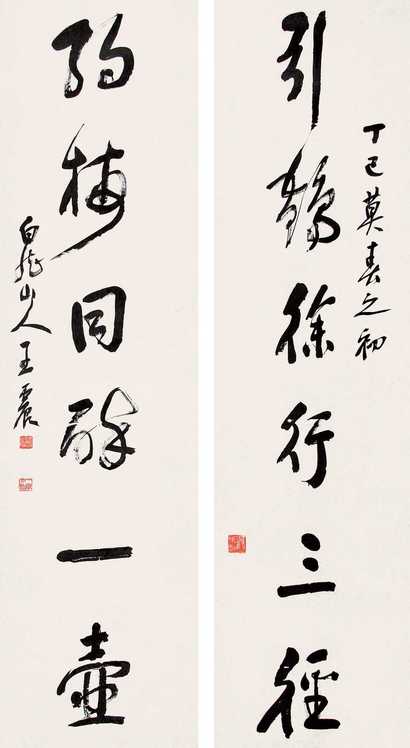 丁巳莫春之初
引鶴徐行三徑
約梅同醉一壺
白龍山人王震